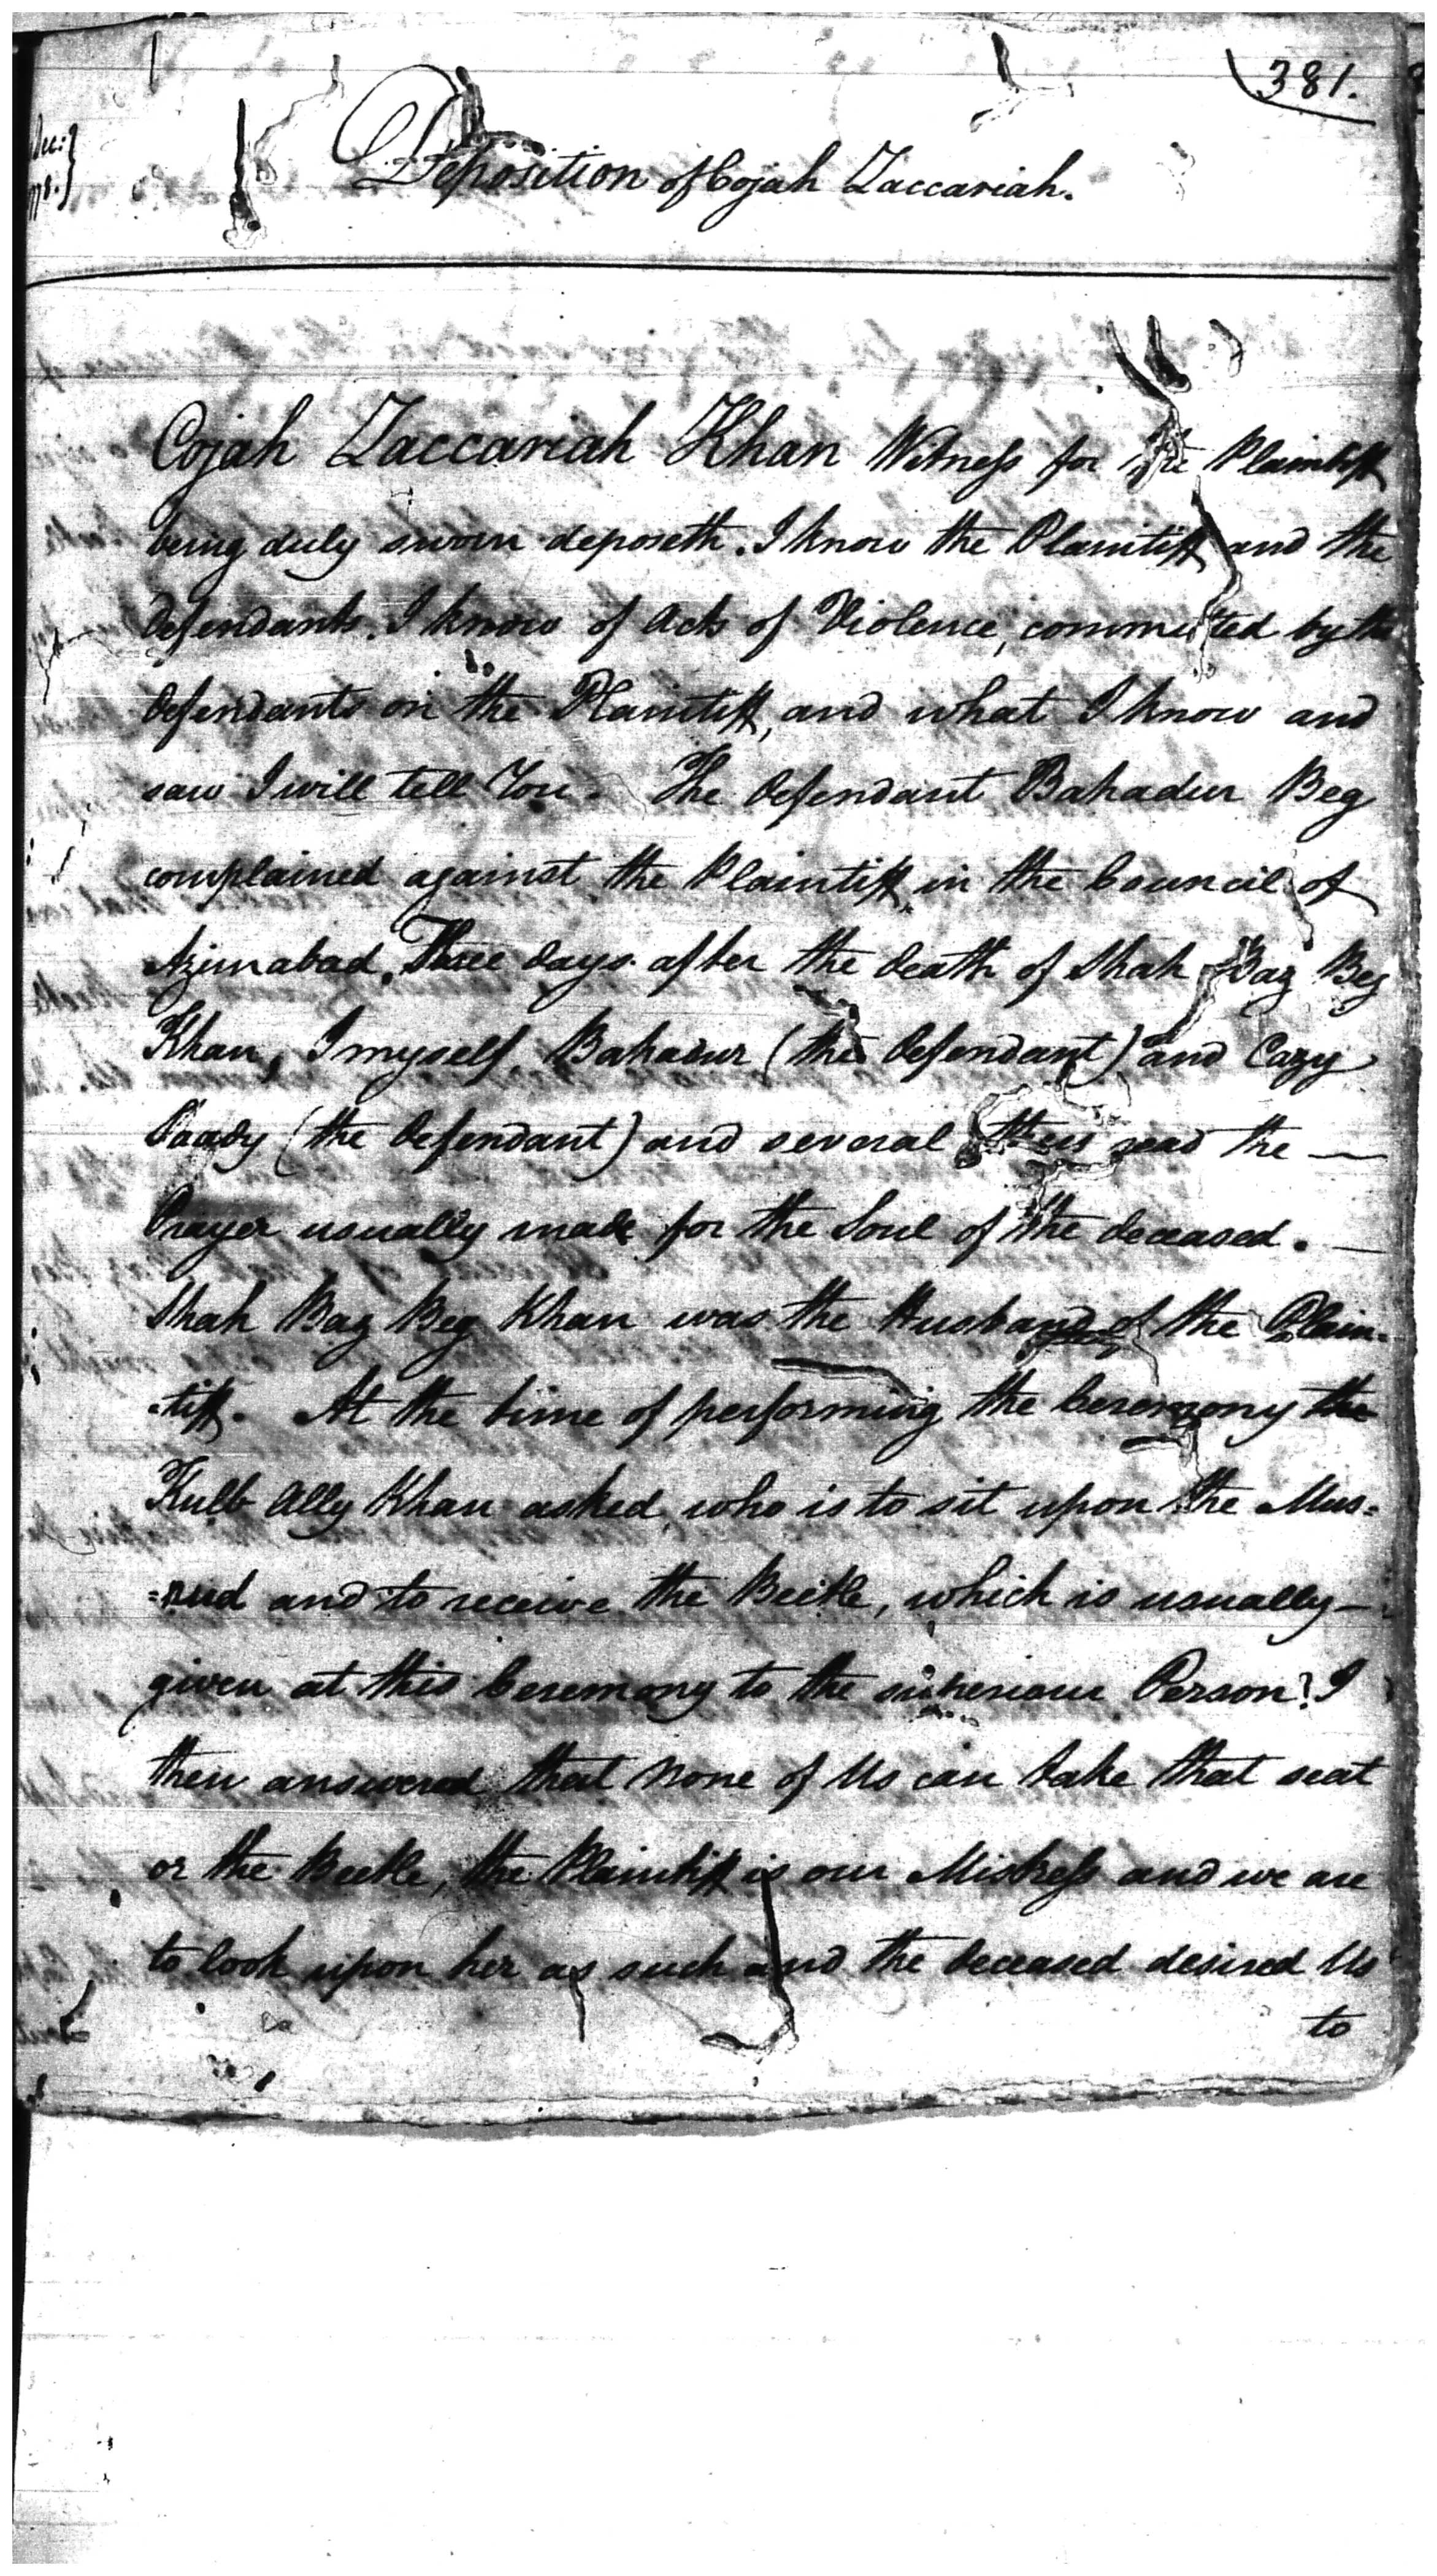 381.
Deposition of Cojah Zaccariah.
Cojah Zaccariah Khan Witness for the Plaintiff
being duly sworn deposeth. I know the Plaintiff and the
defendants. I know of Acts of Violence, committed by the
defendants on the Plaintiff, and what I know and
saw I will tell You. The defendant Bahadur Beg
complained against the Plaintiff, in the Council of
Azimabad. Three days after the death of Shah Baz Beg
Khan, I myself, Bahadur (the defendant) and Cazy
(the defendant) and several others read the —
Prayer usually made for the Soul of the deceased. —
Shah Baz Beg Khan was the Husband of the Plain-
-tiff. At the time of performing the Ceremony the
Kulb Ally Khan asked, who is to sit upon the Mus=
=nud and to receive the Beetle, which is usually —
given at this Ceremony to the superiour Person? I
then answered that None of Us can take that seat
or the Beetle, the Plaintiff is our Mistress and we are
to look upon her as such and the deceased desired Us
to